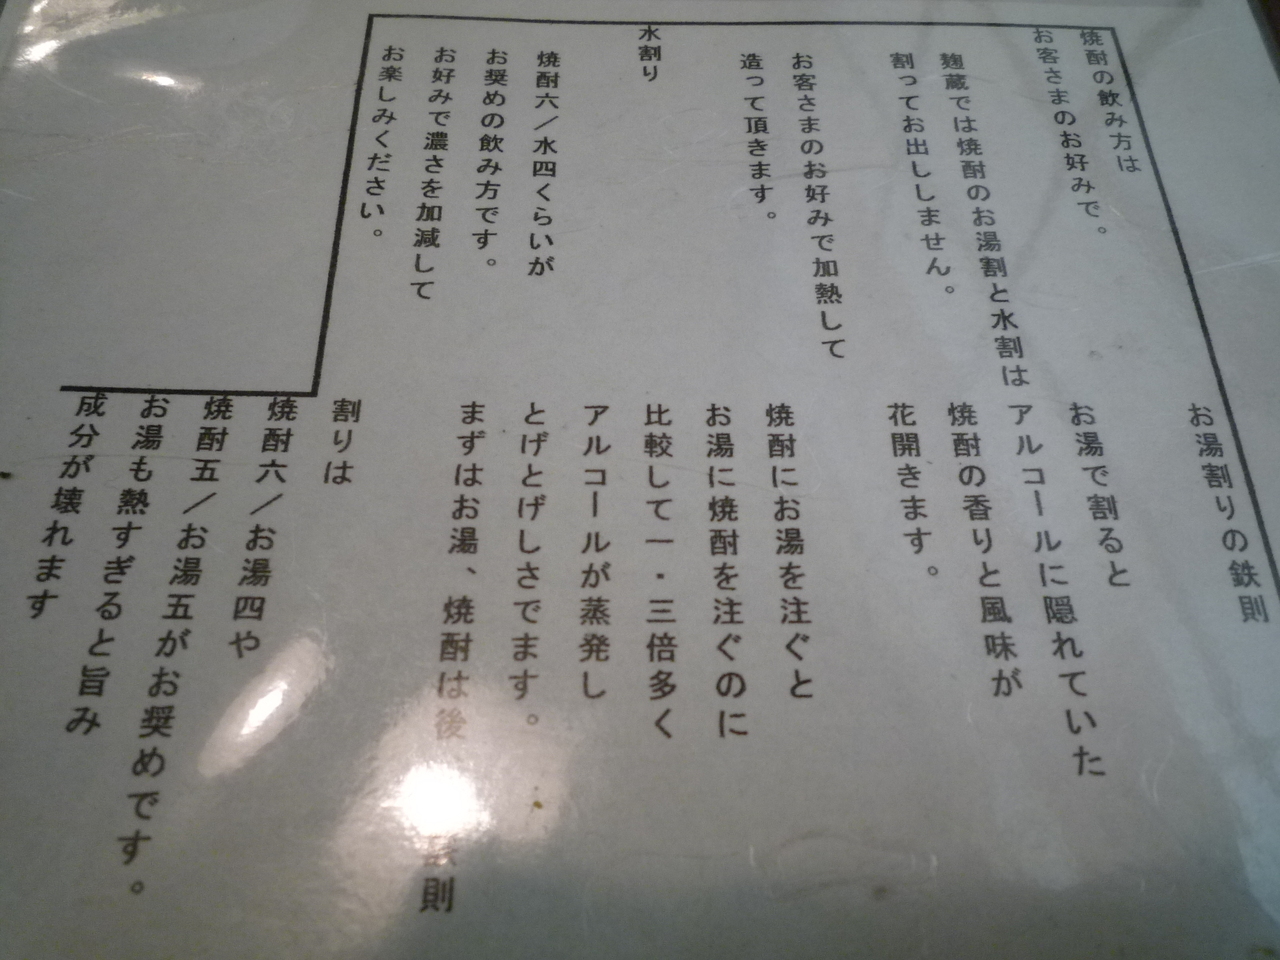 焼酎の飲み方は
お客さまのお好みで。
麹蔵では焼酎のお湯割と水割は
割ってお出ししません。
お客さまのお好みで加熱して
造って頂きます。
水割り
焼酎六／水四くらいが
お奨めの飲み方です。
お好みで濃さを加減して
お楽しみください。
お湯割りの鉄則
お湯で割ると
アルコールに隠れていた
焼酎の香りと風味が
花開きます。
焼酎にお湯を注ぐと
お湯に焼酎を注ぐのに
比較して一・三倍多く
アルコールが蒸発し
とげとげしさでます。
まずはお湯、焼酎は後 鉄則
割りは
焼酎六／お湯四や
焼酎五／お湯五がお奨めです。
お湯も熱すぎると旨み
成分が壊れます